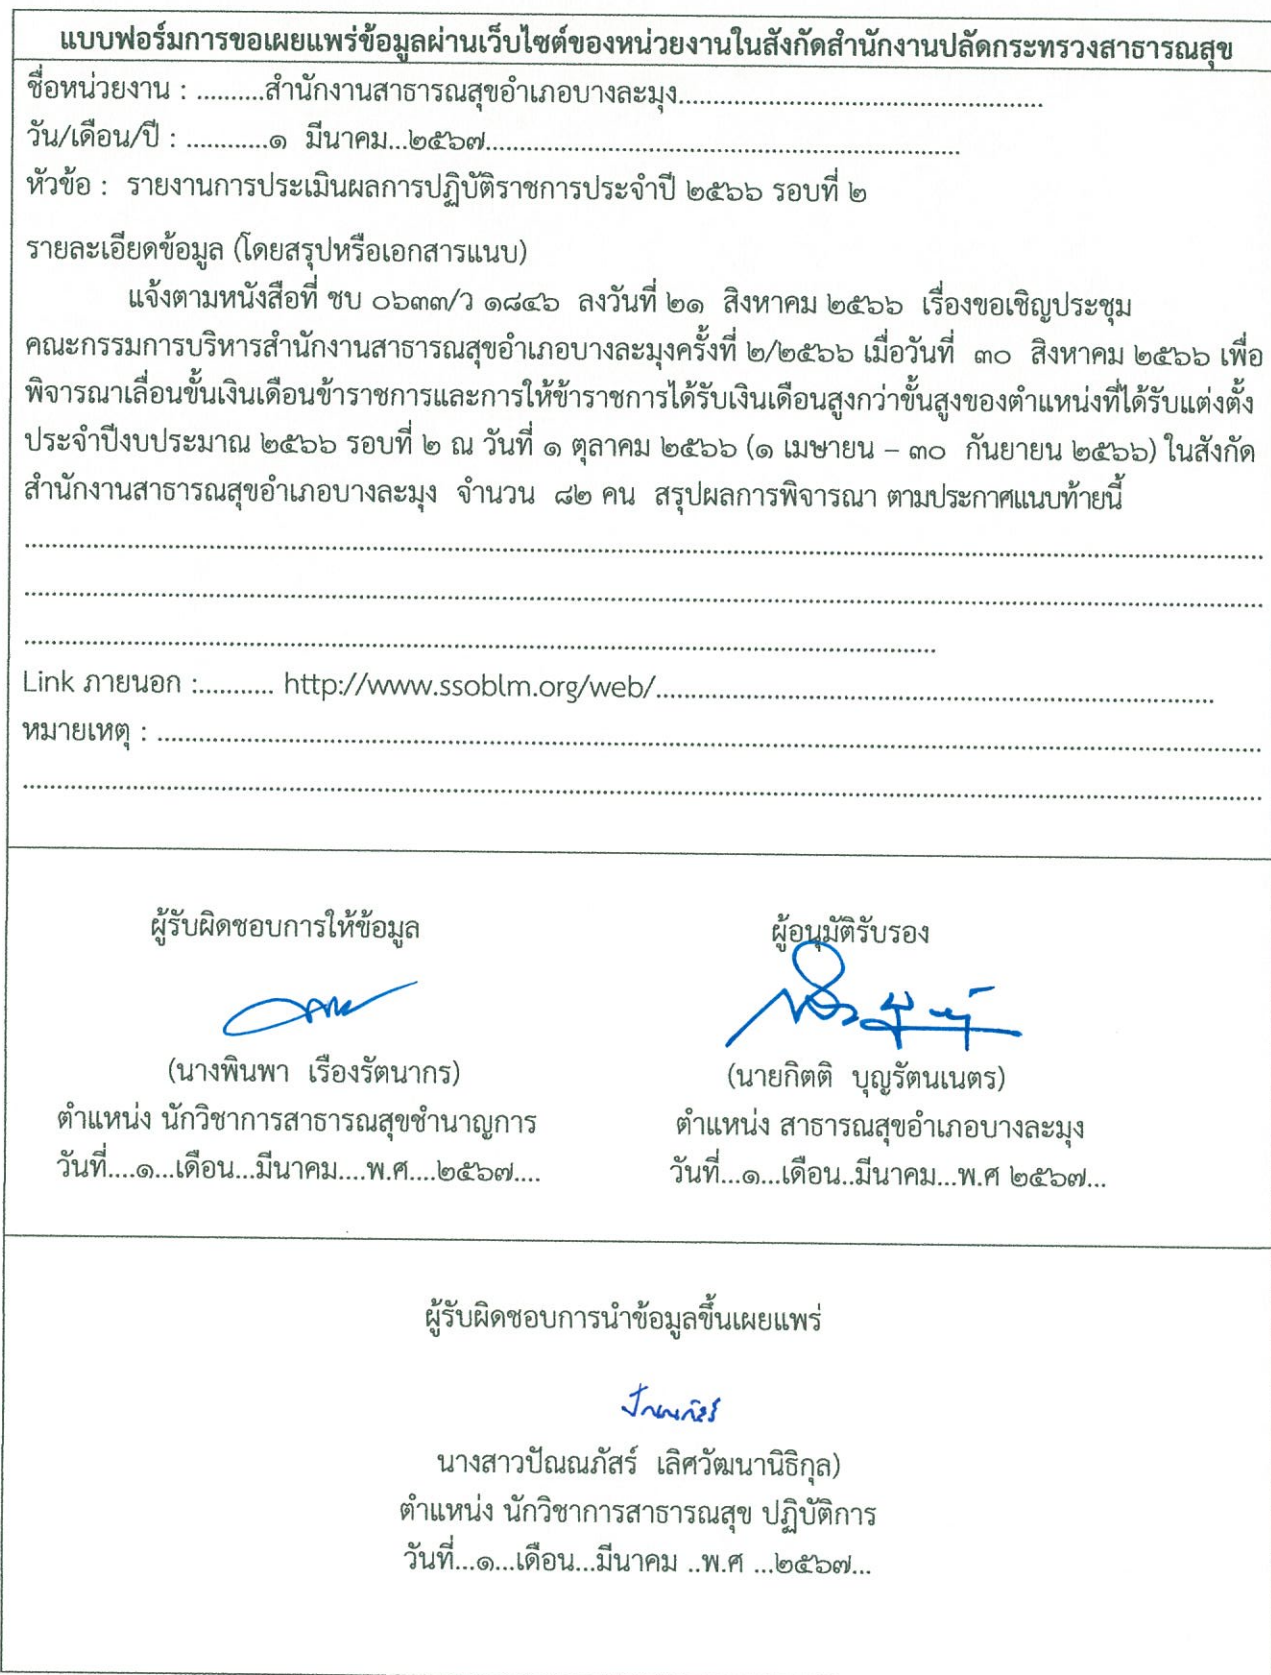 แบบฟอร์มการขอเผยแพร่ข้อมูลผ่านเว็บไซต์ของหน่วยงานในสังกัดสำนักงานปลัดกระทรวงสาธารณสุข
ชื่อหน่วยงาน : ..........สำนักงานสาธารณสุขอำเภอบางละมุง.....................................................
วัน/เดือน/ปี : ............๑ มีนาคม...๒๕๖๗.....................................................................
หัวข้อ : รายงานการประเมินผลการปฏิบัติราชการประจำปี ๒๕๖๖ รอบที่ ๒
รายละเอียดข้อมูล (โดยสรุปหรือเอกสารแนบ)
แจ้งตามหนังสือที่ ชบ ๐๖๓๓/ว ๑๘๔๖ ลงวันที่ ๒๑ สิงหาคม ๒๕๖๖ เรื่องขอเชิญประชุม
คณะกรรมการบริหารสำนักงานสาธารณสุขอำเภอบางละมุงครั้งที่ ๒/๒๕๖๖ เมื่อวันที่ ๓๐ สิงหาคม ๒๕๖๖ เพื่อ
พิจารณาเลื่อนขั้นเงินเดือนข้าราชการและการให้ข้าราชการได้รับเงินเดือนสูงกว่าขั้นสูงของตำแหน่งที่ได้รับแต่งตั้ง
ประจำปีงบประมาณ ๒๕๖๖ รอบที่ ๒ ณ วันที่ ๑ ตุลาคม ๒๕๖๖ (๑ เมษายน – ๓๐ กันยายน ๒๕๖๖) ในสังกัด
สำนักงานสาธารณสุขอำเภอบางละมุง จำนวน ๘๒ คน สรุปผลการพิจารณา ตามประกาศแนบท้ายนี้
Link ภายนอก :........... http://www.ssoblm.org/web/.................................................................................
หมายเหตุ : ................................................................................................................................
ผู้รับผิดชอบการให้ข้อมูล
(นางพินพา เรืองรัตนากร)
ตำแหน่ง นักวิชาการสาธารณสุขชำนาญการ
วันที่....๑...เดือน...มีนาคม....พ.ศ....๒๕๖๗....
ผู้อนุมัติรับรอง
(นายกิตติ บุญรัตนเนตร)
ตำแหน่ง สาธารณสุขอำเภอบางละมุง
วันที่...๑...เดือน..มีนาคม...พ.ศ ๒๕๖๗...
ผู้รับผิดชอบการนำข้อมูลขึ้นเผยแพร่
ปัณณภัสร์
นางสาวปัณณภัสร์ เลิศวัฒนานิธิกุล)
ตำแหน่ง นักวิชาการสาธารณสุข ปฏิบัติการ
วันที่...๑...เดือน...มีนาคม ..พ.ศ ...๒๕๖๗...